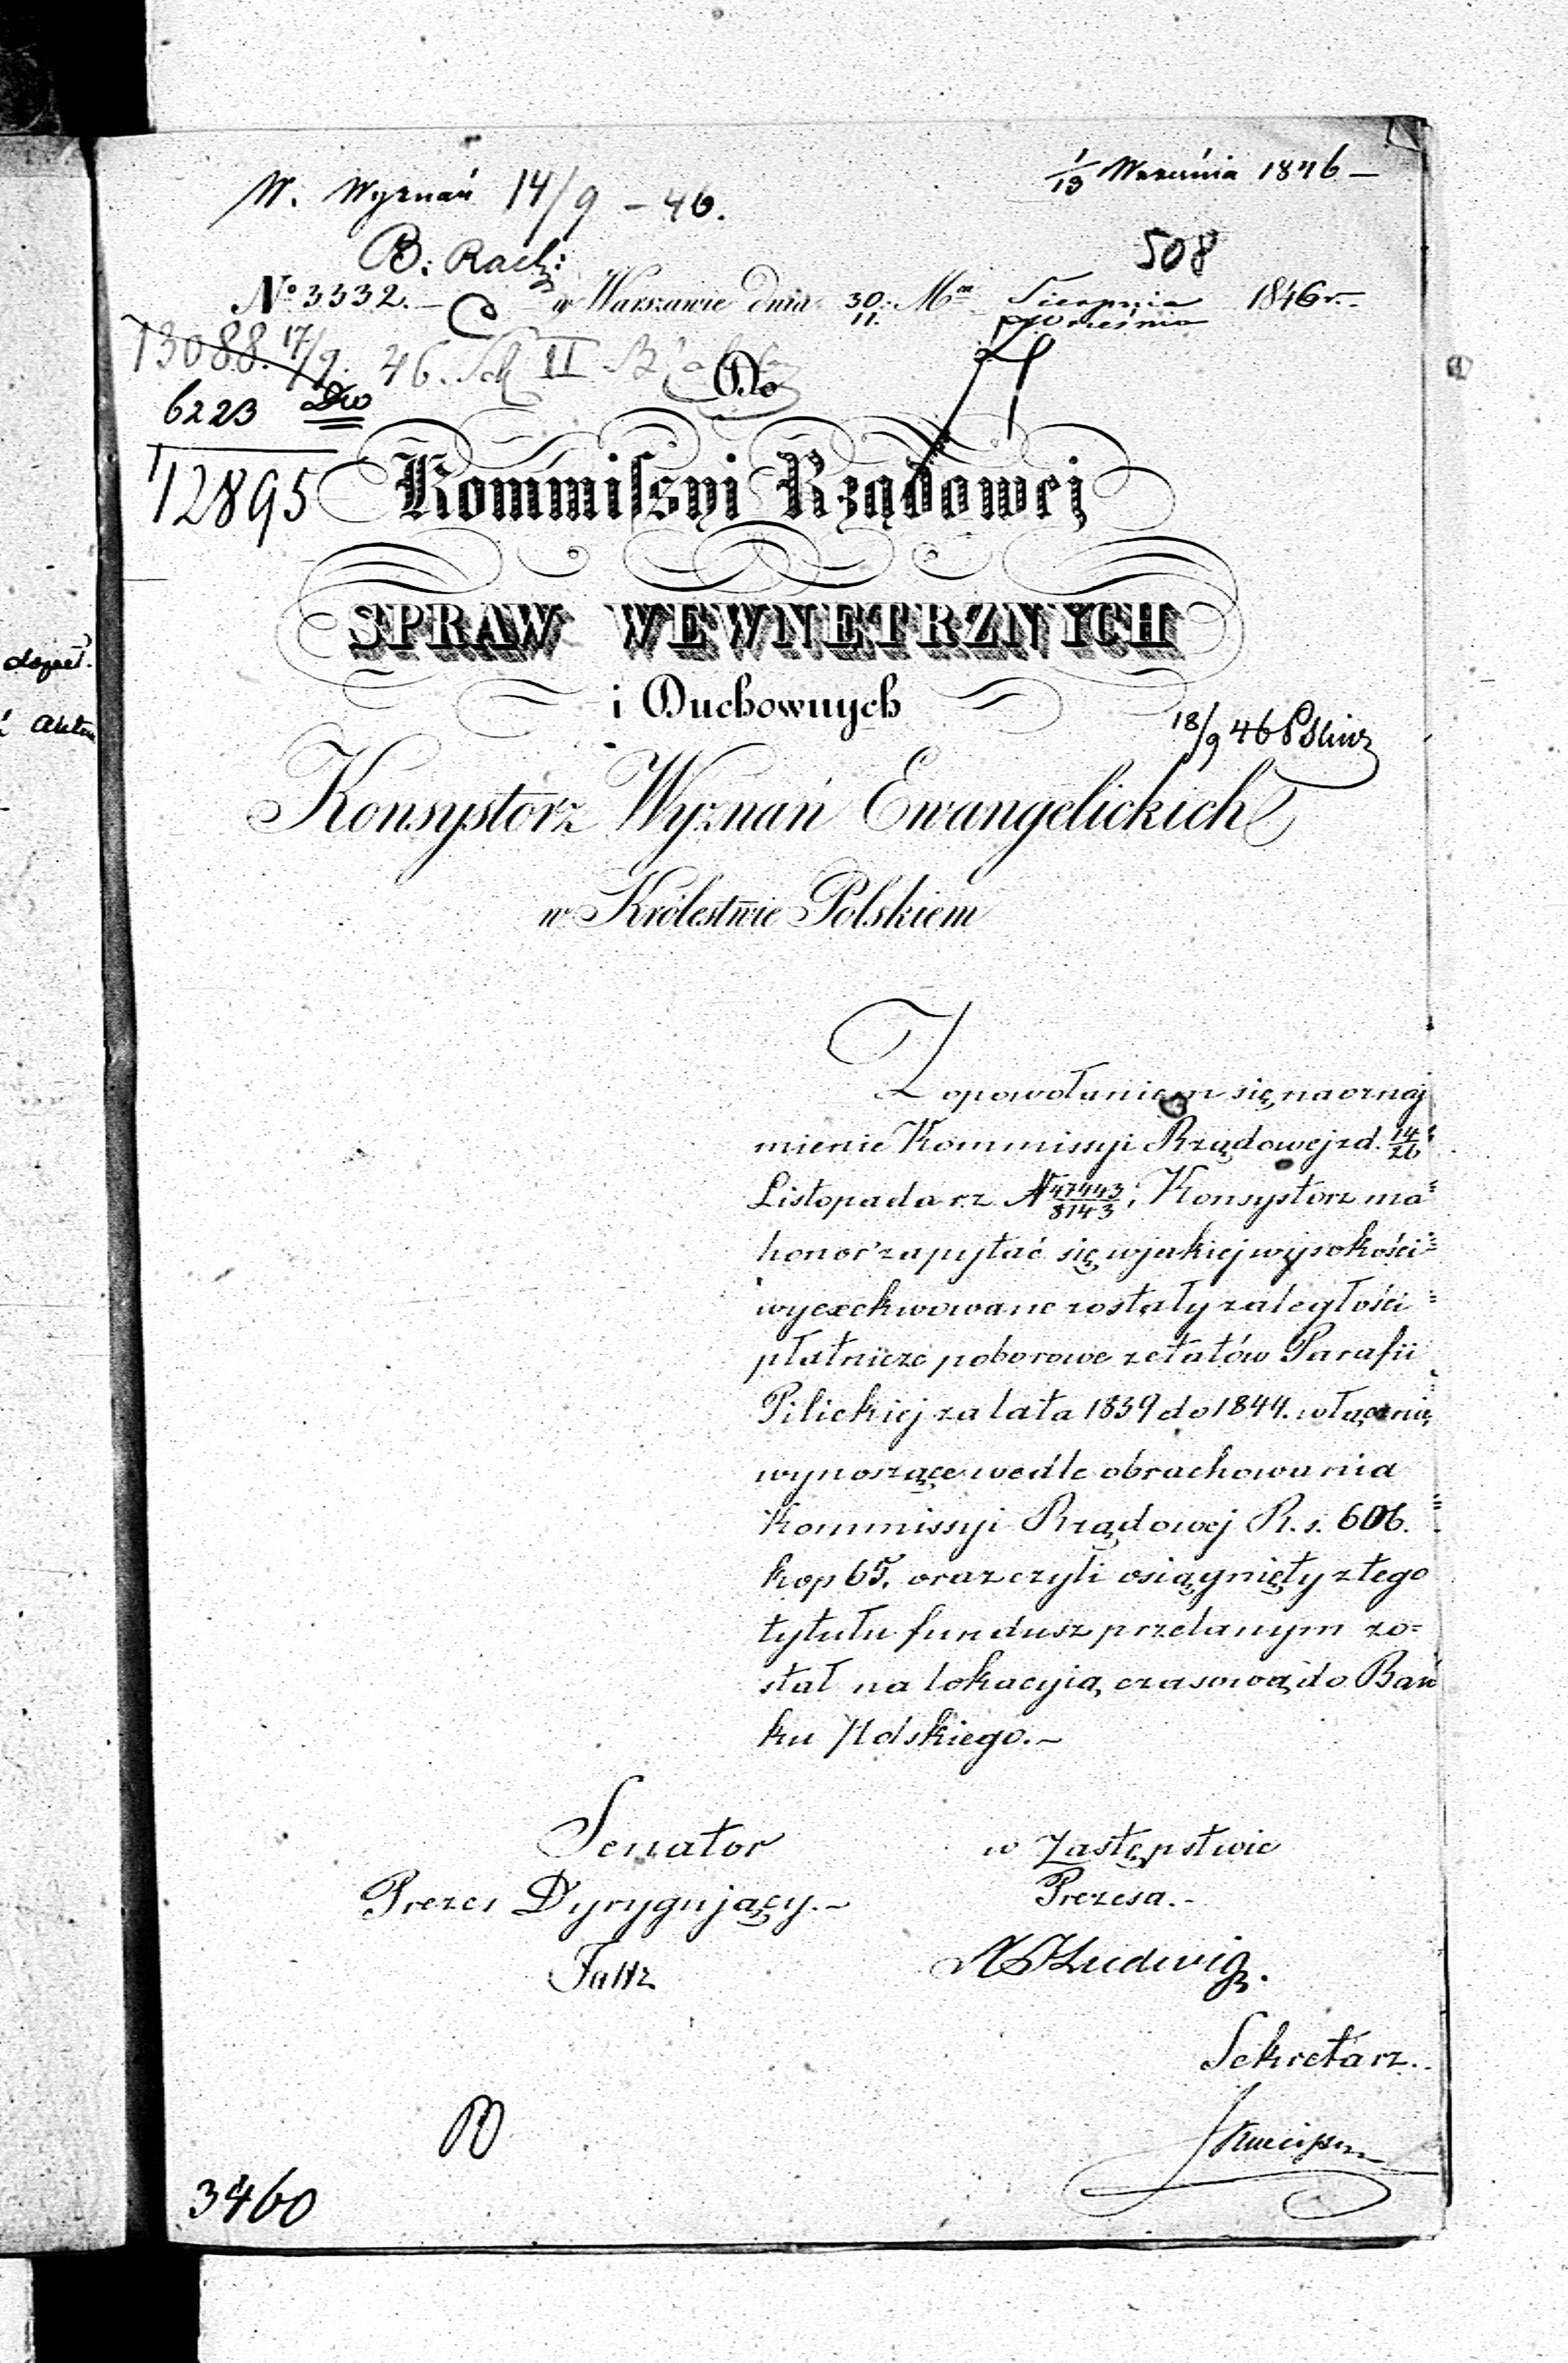 1/13 Września 1846 –
W. Wyznań 14/9 – 46.
508
B: Rach:
No 3332. – w Warszawie dnia 30/11. Mca Sierpnia/Września 1846 r. –
13088. 17/9. 46. II
6223
12895
Do
Kommiſsyi Rządowej
SPRAW WEWNETRZNYCH
i Duchownych
18/9 46
Konsystorz Wyznań Ewangelickich
w Królestwie Polskiem
Z opowołaniem się na oznaj
mienie Kommissyi Rządowej z d. 14/26
Listopada r. z. N 47443/8143, Konsystorz ma
honor zapytać się w jakiej wysokości
wyexekwowane zostały zaległości
płatnicze poborowe z etatów Parafii
Pilickiej za lata 1839 do 1844. włącznie,
wynoszące wedle obrachowania
Kommissyi Rządowej R. s. 606.
kop 65. oraz czyli osiągnięty z tego
tytułu fundusz przelanym zo=
stał na lokacyią czasową do Ban
ku Polskiego. –
Senator w Zastępstwie
Prezes Dyrygujący. – Prezesa. –
Ludwig.
Sekretarz.
3460